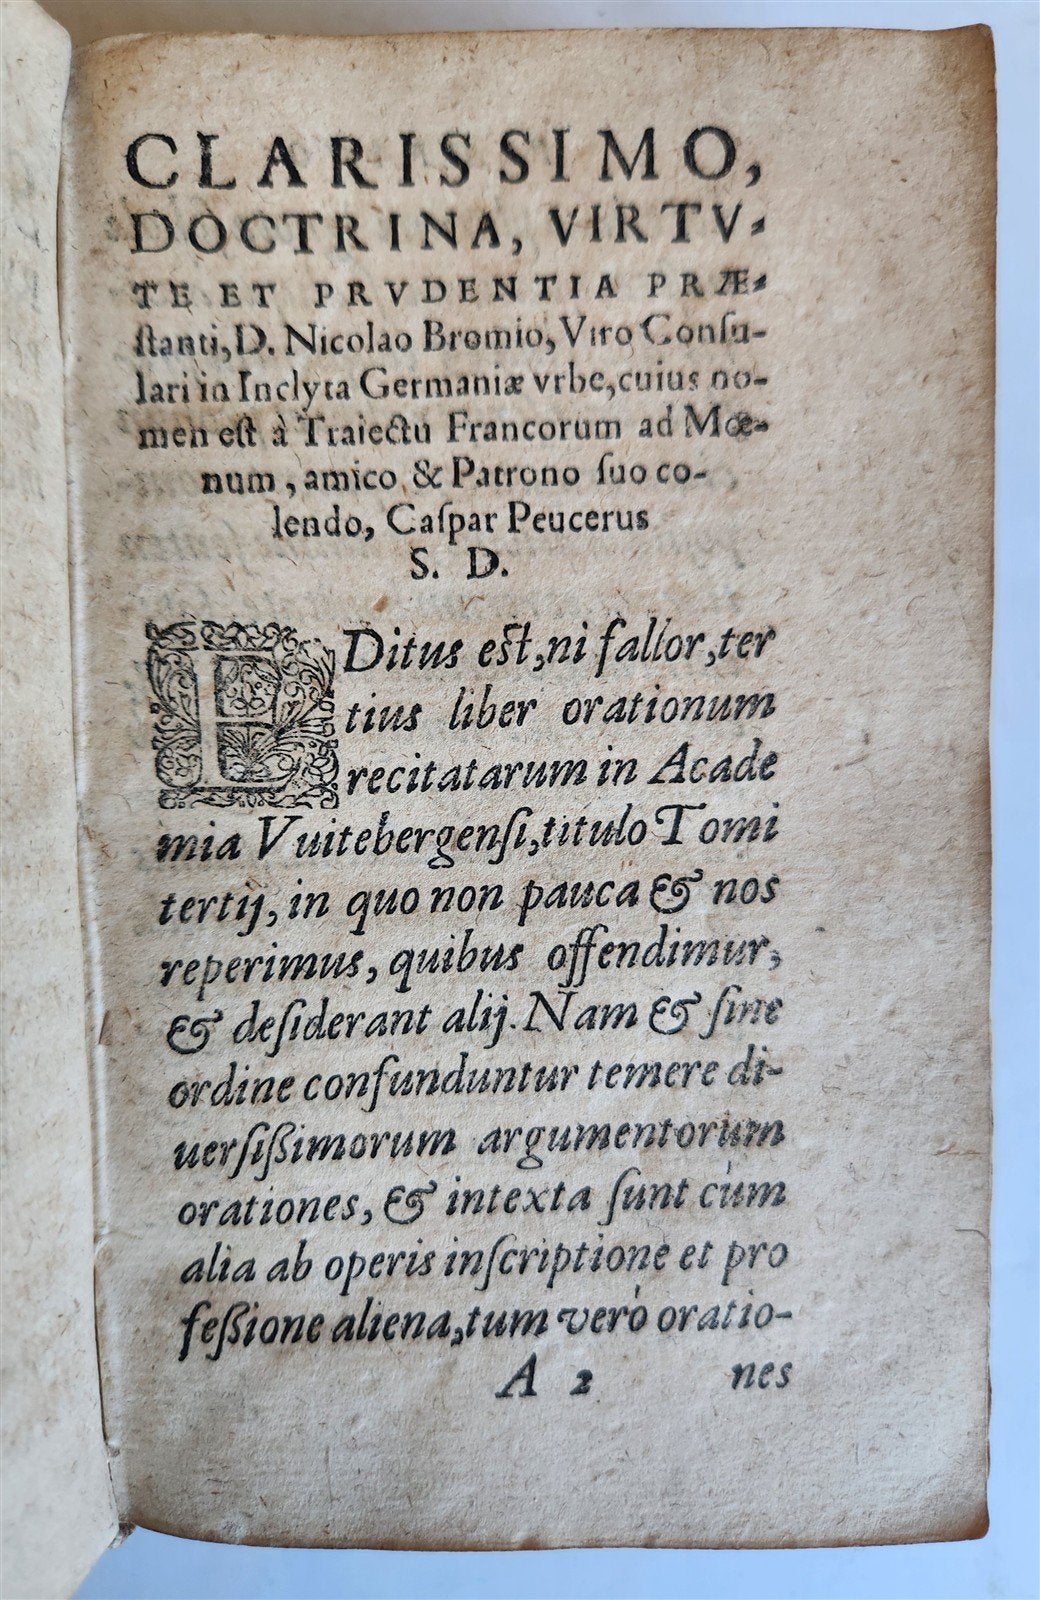 CLARISSIMO,
DOCTRINA, VIRTV-
TE ET PRVDENTIA PRÆ-
ſtanti, D. Nicolao Bromio, Viro Conſu-
lari in Inclyta Germaniæ vrbe, cuius no-
men eſt à Traiectu Francorum ad Mœ-
num, amico & Patrono ſuo co-
lendo, Caſpar Peucerus
S. D.
EDitus eſt, ni fallor, ter
tius liber orationum
recitatarum in Acade
mia Vuitebergenſi, titulo Tomi
tertij, in quo non pauca & nos
reperimus, quibus offendimur,
& deſiderant alij. Nam & ſine
ordine confunduntur temere di-
uerſißimorum argumentorum
orationes, & intexta ſunt cùm
alia ab operis inſcriptione et pro
feßione aliena, tum verò oratio-
A 2 nes